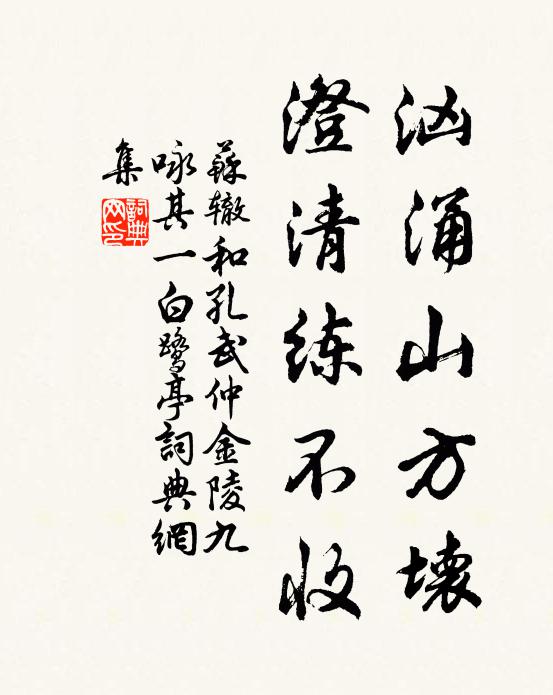 汹涌山方壊
澄清练不收
蘇辙和孔武仲金陵九
咏其一白鹭亭詞典網
集
詞典网印